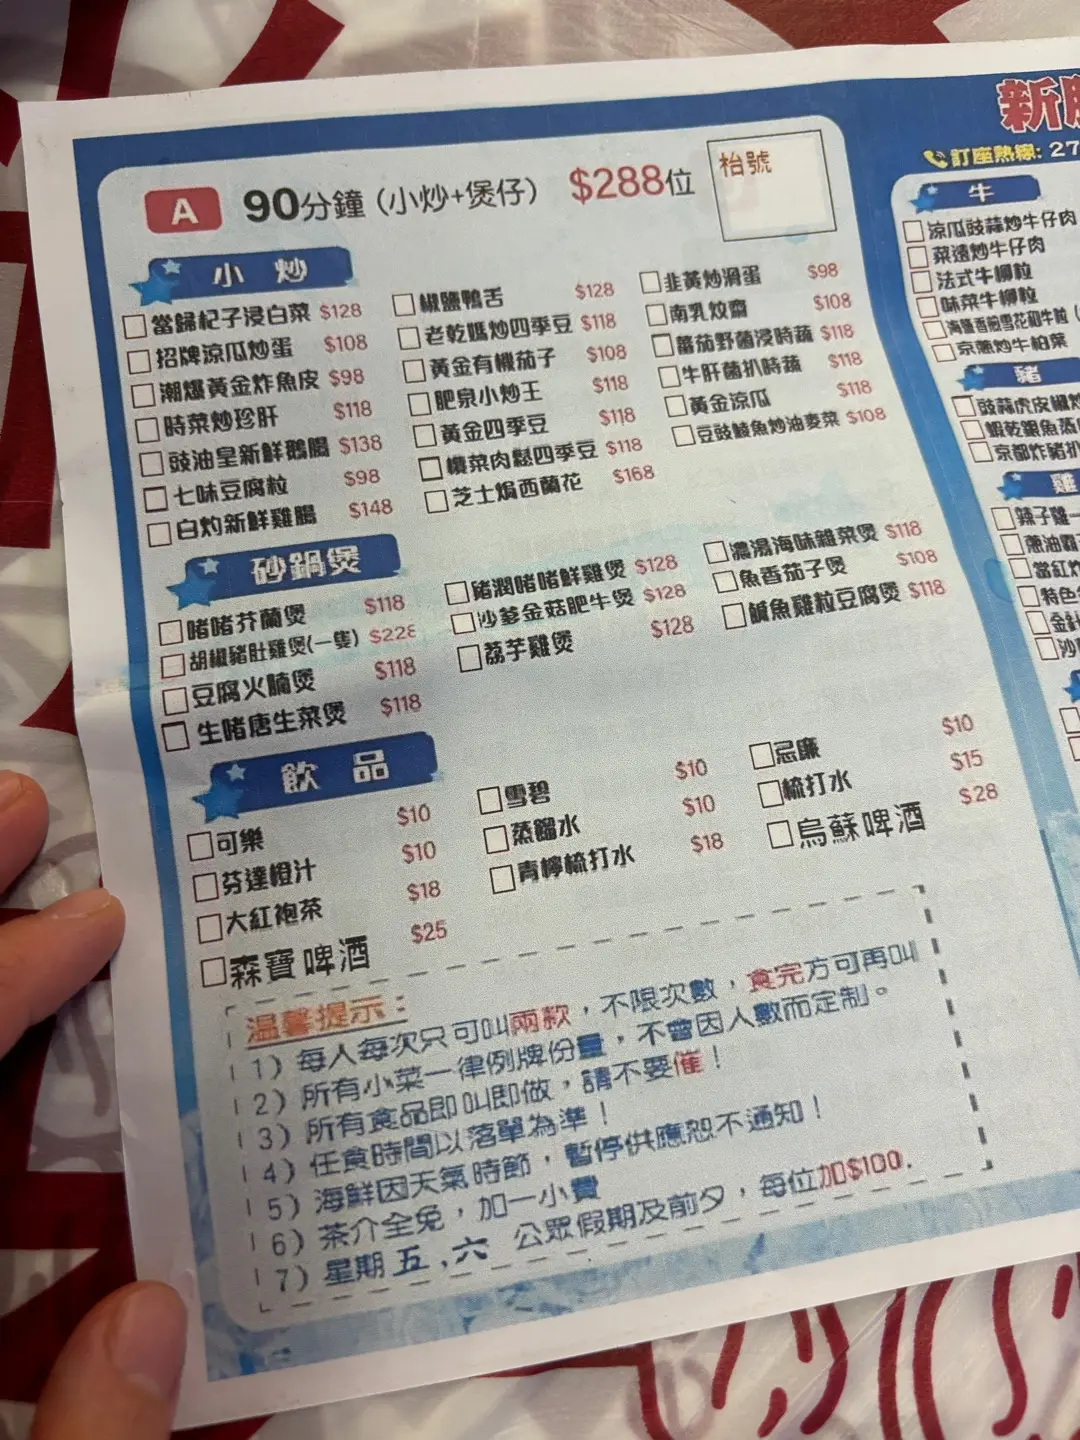 A 90分鐘 (小炒+煲仔) $288位
枱號
小 炒
當歸杞子浸白菜 $128
招牌涼瓜炒蛋 $108
潮爆黃金炸魚皮 $98
時菜炒珍肝 $118
豉油皇新鮮鵝腸 $138
七味豆腐粒 $98
白灼新鮮雞腸 $148
椒鹽鴨舌 $128
老乾媽炒四季豆 $118
黃金有機茄子 $108
肥泉小炒王 $118
黃金四季豆 $118
欖菜肉鬆四季豆 $118
芝士焗西蘭花 $168
韭黃炒滑蛋 $98
南乳炆齋 $108
蕃茄野菌浸時蔬 $118
牛肝菌扒時蔬 $118
黃金涼瓜 $118
豆豉鯪魚炒油麥菜 $108
砂鍋煲
啫啫芥蘭煲 $118
胡椒豬肚雞煲(一隻) $228
豆腐火腩煲 $118
生啫唐生菜煲 $118
豬潤啫啫鮮雞煲 $128
沙爹金菇肥牛煲 $128
荔芋雞煲 $128
濃湯海味雜菜煲 $118
魚香茄子煲 $108
鹹魚雞粒豆腐煲 $118
飲 品
可樂 $10
芬達橙汁 $10
大紅袍茶 $18
森寶啤酒 $25
雪碧 $10
蒸餾水 $10
青檸梳打水 $18
忌廉 $10
梳打水 $15
烏蘇啤酒 $28
溫馨提示：
1）每人每次只可叫兩款，不限次數，食完方可再叫
2）所有小菜一律例牌份量，不會因人數而定制。
3）所有食品即叫即做，請不要催！
4）任食時間以落單為準！
5）海鮮因天氣時節，暫停供應恕不通知！
6）茶介全免，加一小費
7）星期五,六 公眾假期及前夕，每位加$100.
新
訂座熱線: 27
牛
涼瓜豉蒜炒牛仔肉
菜遠炒牛仔肉
法式牛柳粒
味菜牛柳粒
海鹽香煎雪花和牛粒（
京蔥炒牛柏葉
豬
豉蒜虎皮椒炒
蝦乾銀魚蒸
京都炸豬扒
雞
辣子雞一
蔥油霸
當紅炸
特色
金針
沙